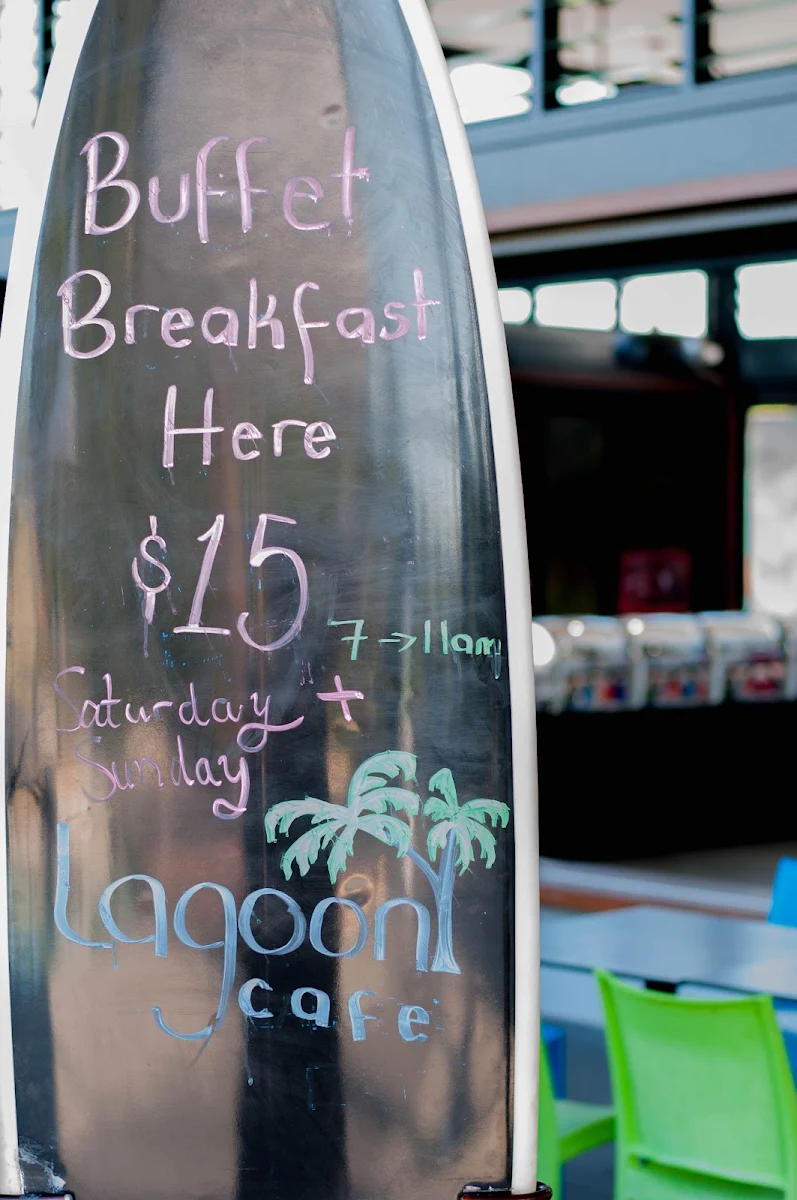 Buffet
Breakfast
Here
$15
7 → 11am
Saturday +
Sunday
Lagoon
cafe